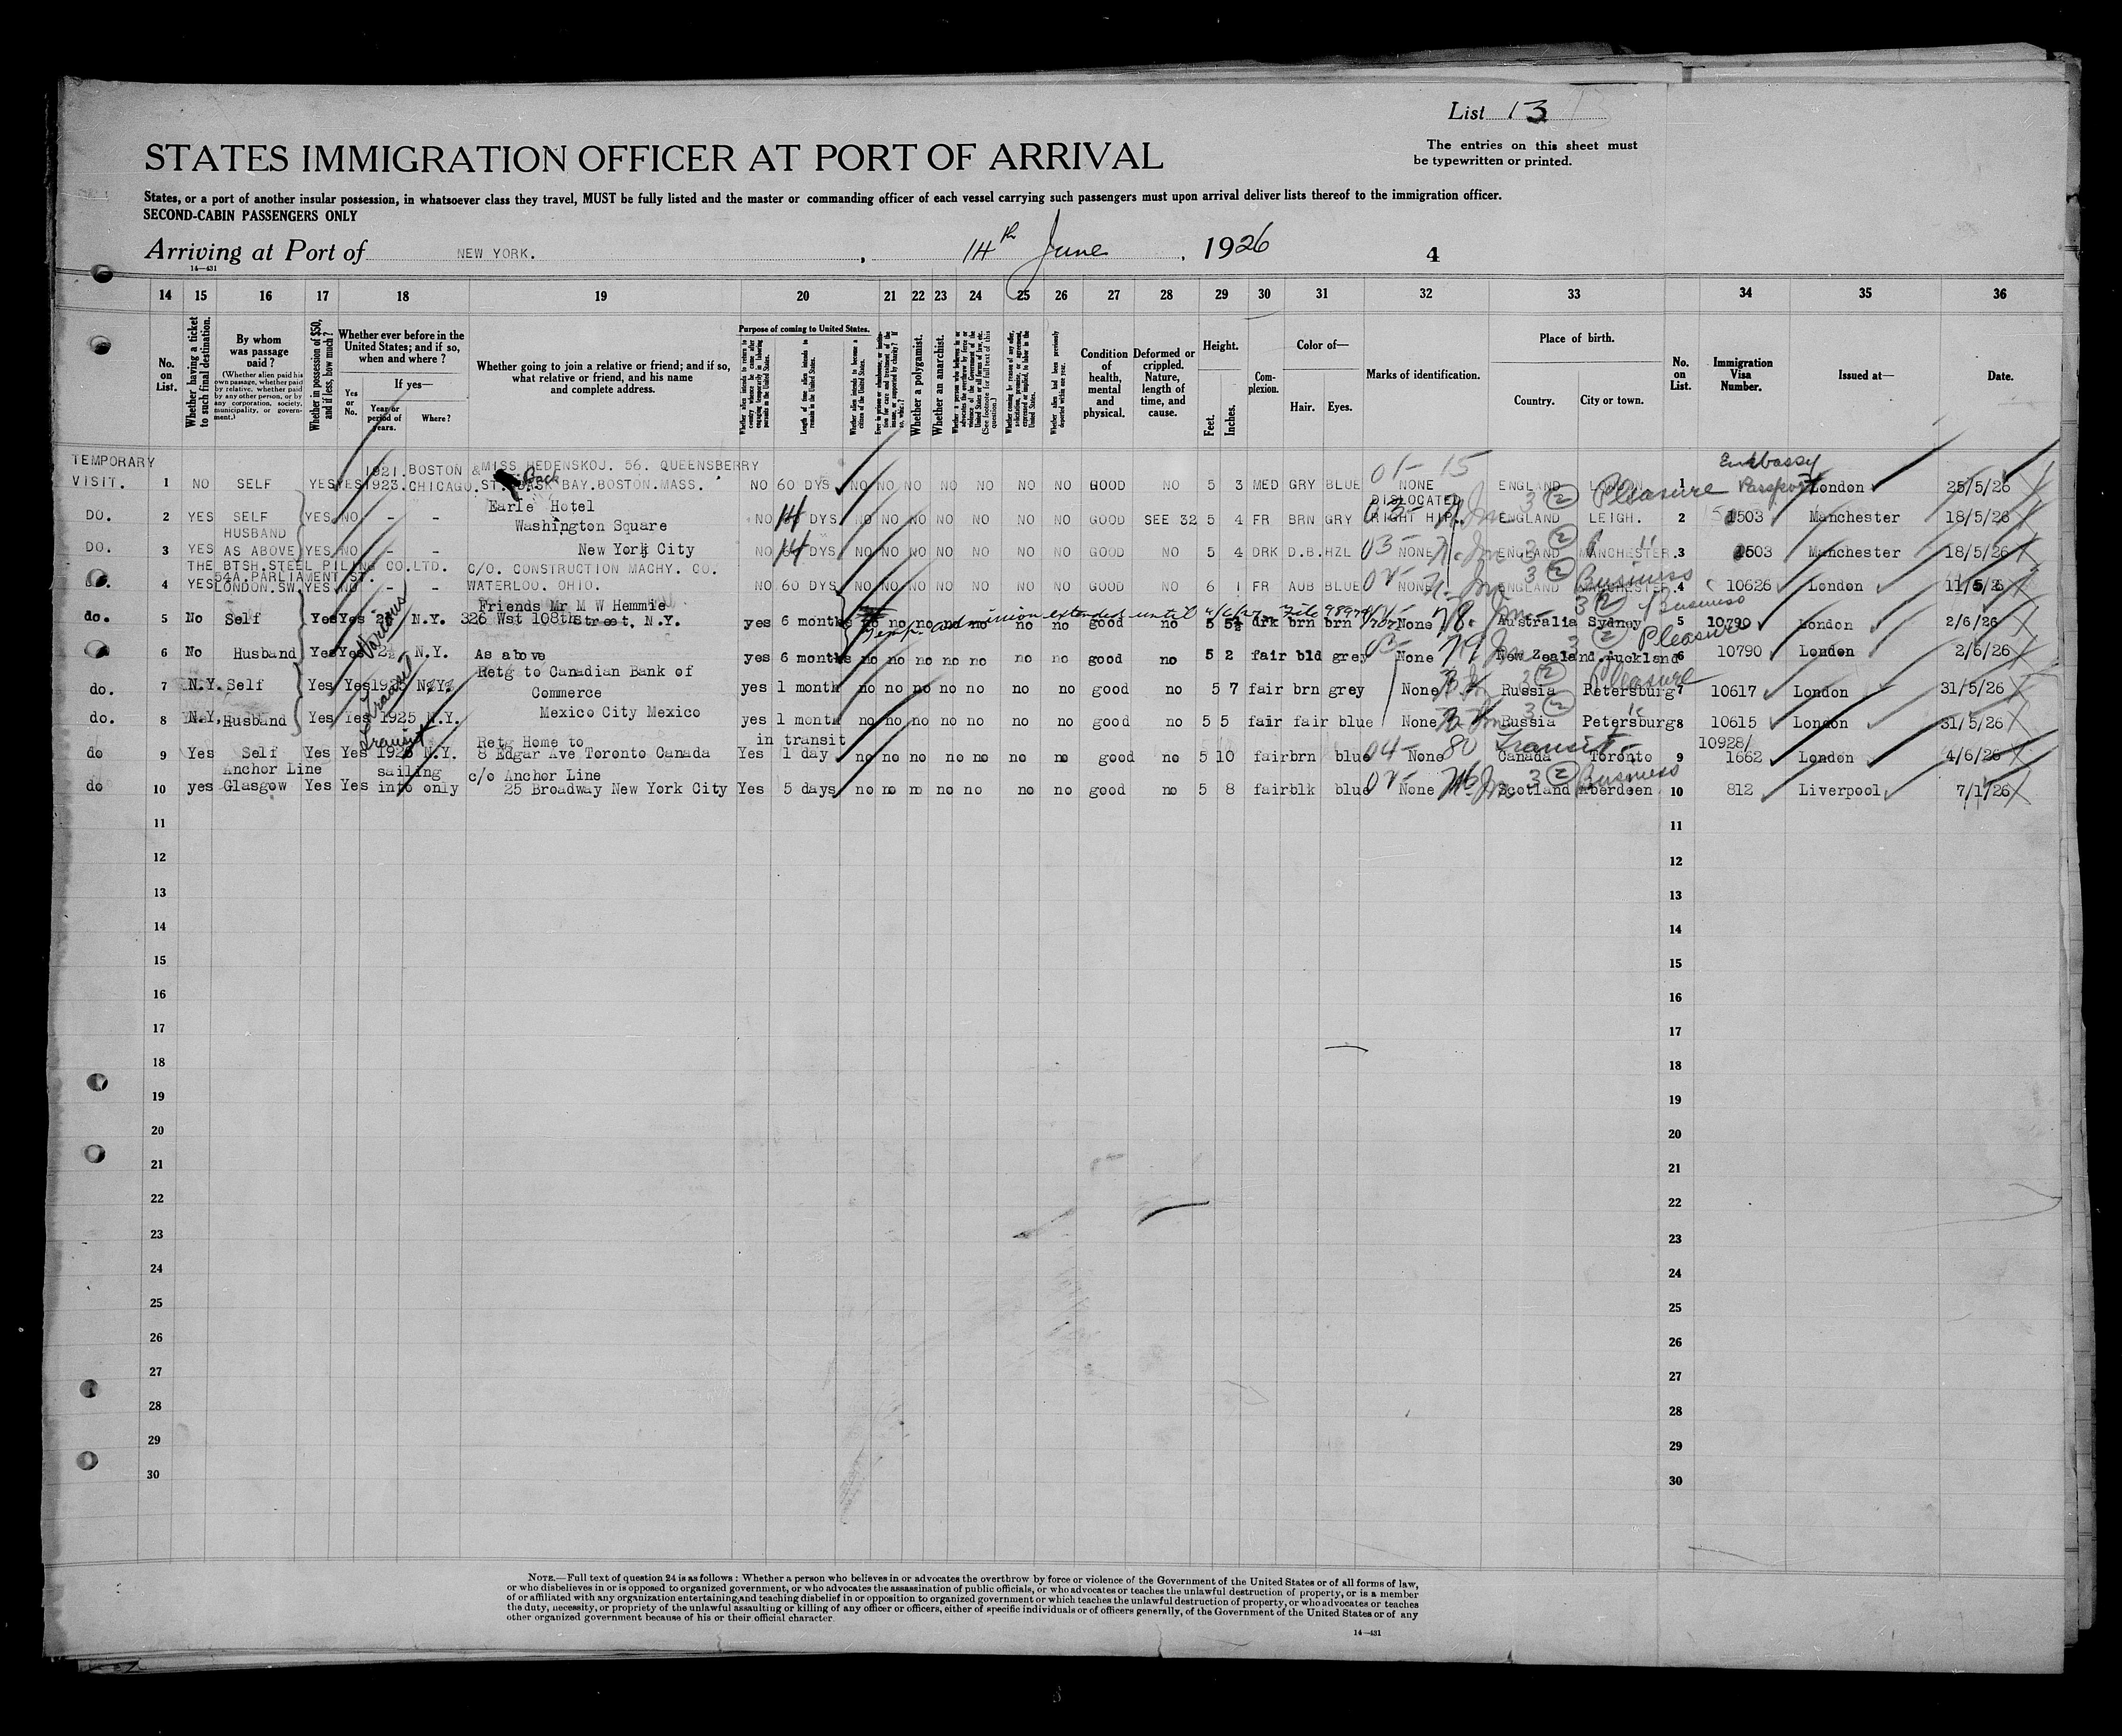 List 13
The entries on this sheet must
be typewritten or printed.
STATES IMMIGRATION OFFICER AT PORT OF ARRIVAL
States, or a port of another insular possession, in whatsoever class they travel, MUST be fully listed and the master or commanding officer of each vessel carrying such passengers must upon arrival deliver lists thereof to the immigration officer.
SECOND-CABIN PASSENGERS ONLY
Arriving at Port of NEW YORK. , 14th June , 1926 4
14—431
14 15 16 17 18 19 20 21 22 23 24 25 26 27 28 29 30 31 32 33 34 35 36
No. on List.
Whether having a ticket to such final destination.
By whom was passage paid?
(Whether alien paid his own passage, whether paid by relative, whether paid by any other person, or by any corporation, society, municipality, or government.)
Whether in possession of $50, and if less, how much?
Whether ever before in the United States; and if so, when and where?
Yes or No.
If yes—
Year or period of years.
Where?
Whether going to join a relative or friend; and if so, what relative or friend, and his name and complete address.
Purpose of coming to United States.
Whether alien intends to return to country whence he came after engaging temporarily in laboring pursuits in the United States.
Length of time alien intends to remain in the United States.
Whether alien intends to become a citizen of the United States.
Whether a polygamist.
Whether an anarchist.
Condition of health, mental and physical.
Deformed or crippled. Nature, length of time, and cause.
Height.
Feet. Inches.
Complexion.
Color of—
Hair. Eyes.
Marks of identification.
Place of birth.
Country. City or town.
No. on List.
Immigration Visa Number.
Issued at—
Date.
TEMPORARY 1921. BOSTON & MISS HEDENSKOJ. 56. QUEENSBERRY 01- 15 Embassy
VISIT. 1 NO SELF YES YES 1923. CHICAGO. ST. BACK BAY. BOSTON. MASS. NO 60 DYS NO NO NO NO NO NO NO GOOD NO 5 3 MED GRY BLUE NONE ENGLAND LONDON 1 Passport London 25/5/26
Back
Pleasure
Earle Hotel DISLOCATED
DO. 2 YES SELF YES NO - - Washington Square NO 14 DYS NO NO NO NO NO NO NO GOOD SEE 32 5 4 FR BRN GRY RIGHT HIP. ENGLAND LEIGH. 2 1503 Manchester 18/5/26
HUSBAND
DO. 3 YES AS ABOVE YES NO - - New York City NO 14 DYS NO NO NO NO NO NO NO GOOD NO 5 4 DRK D.B. HZL NONE ENGLAND MANCHESTER. 3 1503 Manchester 18/5/26
THE BTSH. STEEL PILING CO. LTD. C/O. CONSTRUCTION MACHY. CO.
54A. PARLIAMENT ST.
4 YES LONDON. SW. YES NO WATERLOO. OHIO. NO 60 DYS NO NO NO NO NO NO NO GOOD NO 6 1 FR AUB BLUE NONE ENGLAND MANCHESTER. 4 10626 London 11/5/26
Business
Friends Mr M W Hemmie
Temp. admission extended until
do. 5 No Self Yes Yes N.Y. 326 Wst 108th Street, N.Y. yes 6 months no no no no no no no good no 5 5½ drk brn brn None Australia Sydney 5 10790 London 2/6/26
Business
6 No Husband Yes Yes N.Y. As above yes 6 months no no no no no no no good no 5 2 fair bld grey None New Zealand. Auckland 6 10790 London 2/6/26
Pleasure
Various
Retg to Canadian Bank of
do. 7 N.Y. Self Yes Yes N.Y. Commerce yes 1 month no no no no no no no good no 5 7 fair brn grey None Russia Petersburg 7 10617 London 31/5/26
Pleasure
do. 8 N.Y. Husband Yes Yes 1925 N.Y. Mexico City Mexico yes 1 month no no no no no no no good no 5 5 fair fair blue None Russia Petersburg 8 10615 London 31/5/26
Transit
Retg Home to in transit 10928/
do 9 Yes Self Yes Yes 1926 N.Y. 8 Edgar Ave Toronto Canada Yes 1 day no no no no no no no good no 5 10 fair brn blue 04- 80 None Canada Toronto 9 1662 London 4/6/26
Transit
Anchor Line sailing c/o Anchor Line
do 10 yes Glasgow Yes Yes into only 25 Broadway New York City Yes 5 days no no no no no no no good no 5 8 fair blk blue None Scotland Aberdeen 10 812 Liverpool 7/1/26
Business
11 11
12 12
13 13
14 14
15 15
16 16
17 17
18 18
19 19
20 20
21 21
22 22
23 23
24 24
25 25
26 26
27 27
28 28
29 29
30 30
NOTE.—Full text of question 24 is as follows: Whether a person who believes in or advocates the overthrow by force or violence of the Government of the United States or of all forms of law,
or who disbelieves in or is opposed to organized government, or who advocates the assassination of public officials, or who advocates or teaches the unlawful destruction of property, or is a member
of or affiliated with any organization entertaining and teaching disbelief in or opposition to organized government or which teaches the unlawful destruction of property, or who advocates or teaches
the duty, necessity, or propriety of the unlawful assaulting or killing of any officer or officers, either of specific individuals or of officers generally, of the Government of the United States or of any
other organized government because of his or their official character.
14—431